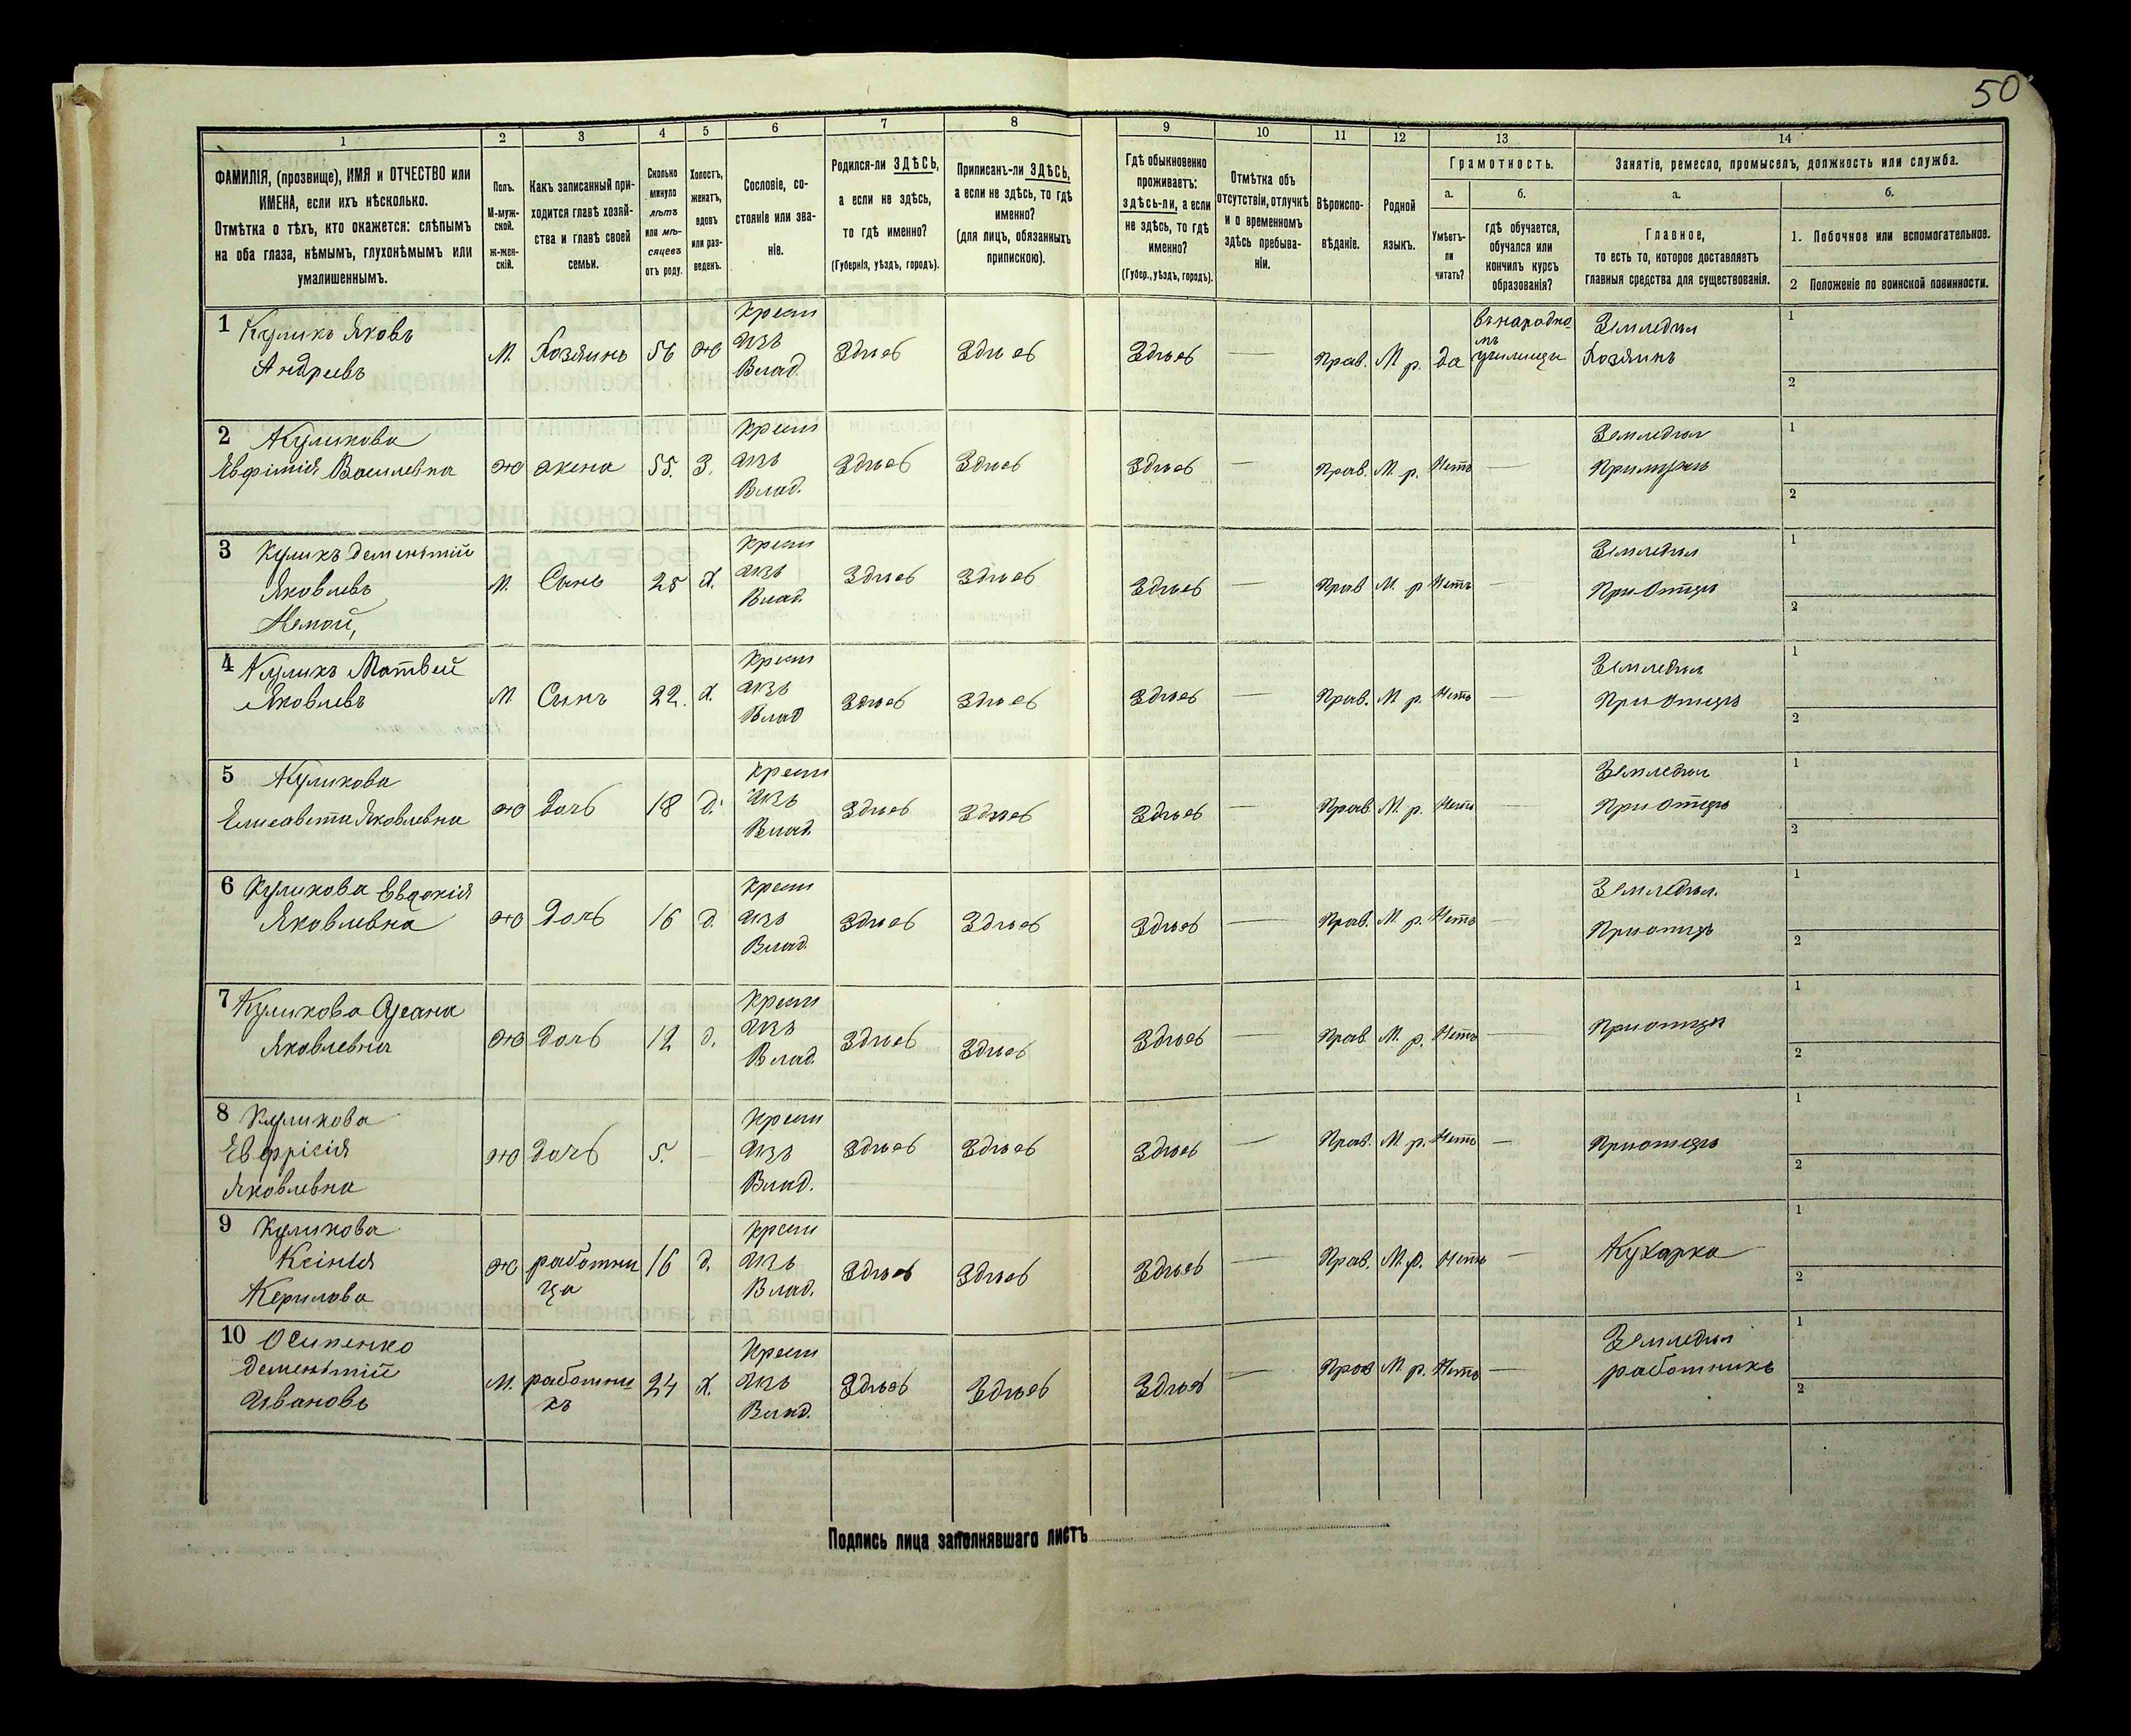 50
1 2 3 4 5 6 7 8 9 10 11 12 13 14
ФАМИЛІЯ, (прозвище), ИМЯ и ОТЧЕСТВО или
ИМЕНА, если ихъ нѣсколько.
Отмѣтка о тѣхъ, кто окажется: слѣпымъ
на оба глаза, нѣмымъ, глухонѣмымъ или
умалишеннымъ.
Полъ.
М-муж-
ской.
Ж-жен-
скій.
Какъ записанный при-
ходится главѣ хозяй-
ства и главѣ своей
семьи.
Сколько
минуло
лѣтъ
или мѣ-
сяцевъ
отъ роду.
Холостъ,
женатъ,
вдовъ
или раз-
веденъ.
Сословіе, со-
стояніе или зва-
ніе.
Родился-ли ЗДѢСЬ,
а если не здѣсь,
то гдѣ именно?
(Губернія, уѣздъ, городъ).
Приписанъ-ли ЗДѢСЬ,
а если не здѣсь, то гдѣ
именно?
(для лицъ, обязанныхъ
припискою).
Гдѣ обыкновенно
проживаетъ:
здѣсь-ли, а если
не здѣсь, то гдѣ
именно?
(Губер., уѣздъ, городъ).
Отмѣтка объ
отсутствіи, отлучкѣ
и о временномъ
здѣсь пребыва-
ніи.
Вѣроиспо-
вѣданіе.
Родной
языкъ.
Грамотность.
а.
Умѣетъ-
ли
читать?
б.
гдѣ обучается,
обучался или
кончилъ курсъ
образованія?
Занятіе, ремесло, промыселъ, должность или служба.
а.
Главное,
то есть то, которое доставляетъ
главныя средства для существованія.
б.
1. Побочное или вспомогательное.
2 Положеніе по воинской повинности.
1 Куликъ Яковъ
Андреевъ
М. Хозяинъ 56 ж
Крест
изъ
Влад.
Здѣсь Здѣсь Здѣсь — Прав. М р. да
въ народно
мъ
училищѣ
Земледѣл
Хозяинъ
1
2
2 Куликова
Евфимія Василевна
ж жена 55. З.
Крест
изъ
Влад.
Здѣсь Здѣсь Здѣсь — Прав. М. р. Нетъ —
Земледѣл
1
2
3 Куликъ Дементій
Яковлевъ
Немой,
М. Сынъ 25 Х.
Крест
изъ
Влад.
Здѣсь Здѣсь Здѣсь — Прав М. р Нетъ —
Земледѣл
При Отцѣ
1
2
4 Куликъ Матвей
Яковлевъ
М Сынъ 22. Х.
Крест
изъ
Влад
Здѣсь Здѣсь Здѣсь — Прав. М. р. Нетъ —
Земледѣл
При Отцѣ
1
2
5 Куликова
Елисавета Яковлевна
ж Дочь 18 д.
Крест
изъ
Влад.
Здѣсь Здѣсь Здѣсь — Прав. М. р. Нетъ —
Земледѣл
При Отцѣ
1
2
6 Куликова Евдокія
Яковлевна
ж Дочь 16 д.
Крест
изъ
Влад.
Здѣсь Здѣсь Здѣсь — Прав. М. р. Нетъ —
Земледѣл.
При отцѣ
1
2
7 Куликова
Яковлевна
ж Дочь 12 д.
Крест
изъ
Влад.
Здѣсь Здѣсь Здѣсь — Прав. М. р. Нетъ —
При отцѣ
1
2
8 Куликова
Яковлевна
ж дочь 5. —
Крест
изъ
Влад.
Здѣсь Здѣсь Здѣсь — Прав. М р. Нетъ —
При отцѣ
1
2
9 Куликова
Ксінія
Керилова
ж работни
ца
16 д.
Крест
изъ
Влад.
Здѣсь Здѣсь Здѣсь — Прав. М. р. Нетъ —
Кухарка
1
2
10 Осипенко
Дементій
Ивановъ
М. работни
къ
24 Х.
Крест
изъ
Влад.
Здѣсь Здѣсь Здѣсь — Прав М р. Нетъ —
Земледѣл
работникъ
1
2
Подпись лица заполнявшаго листъ